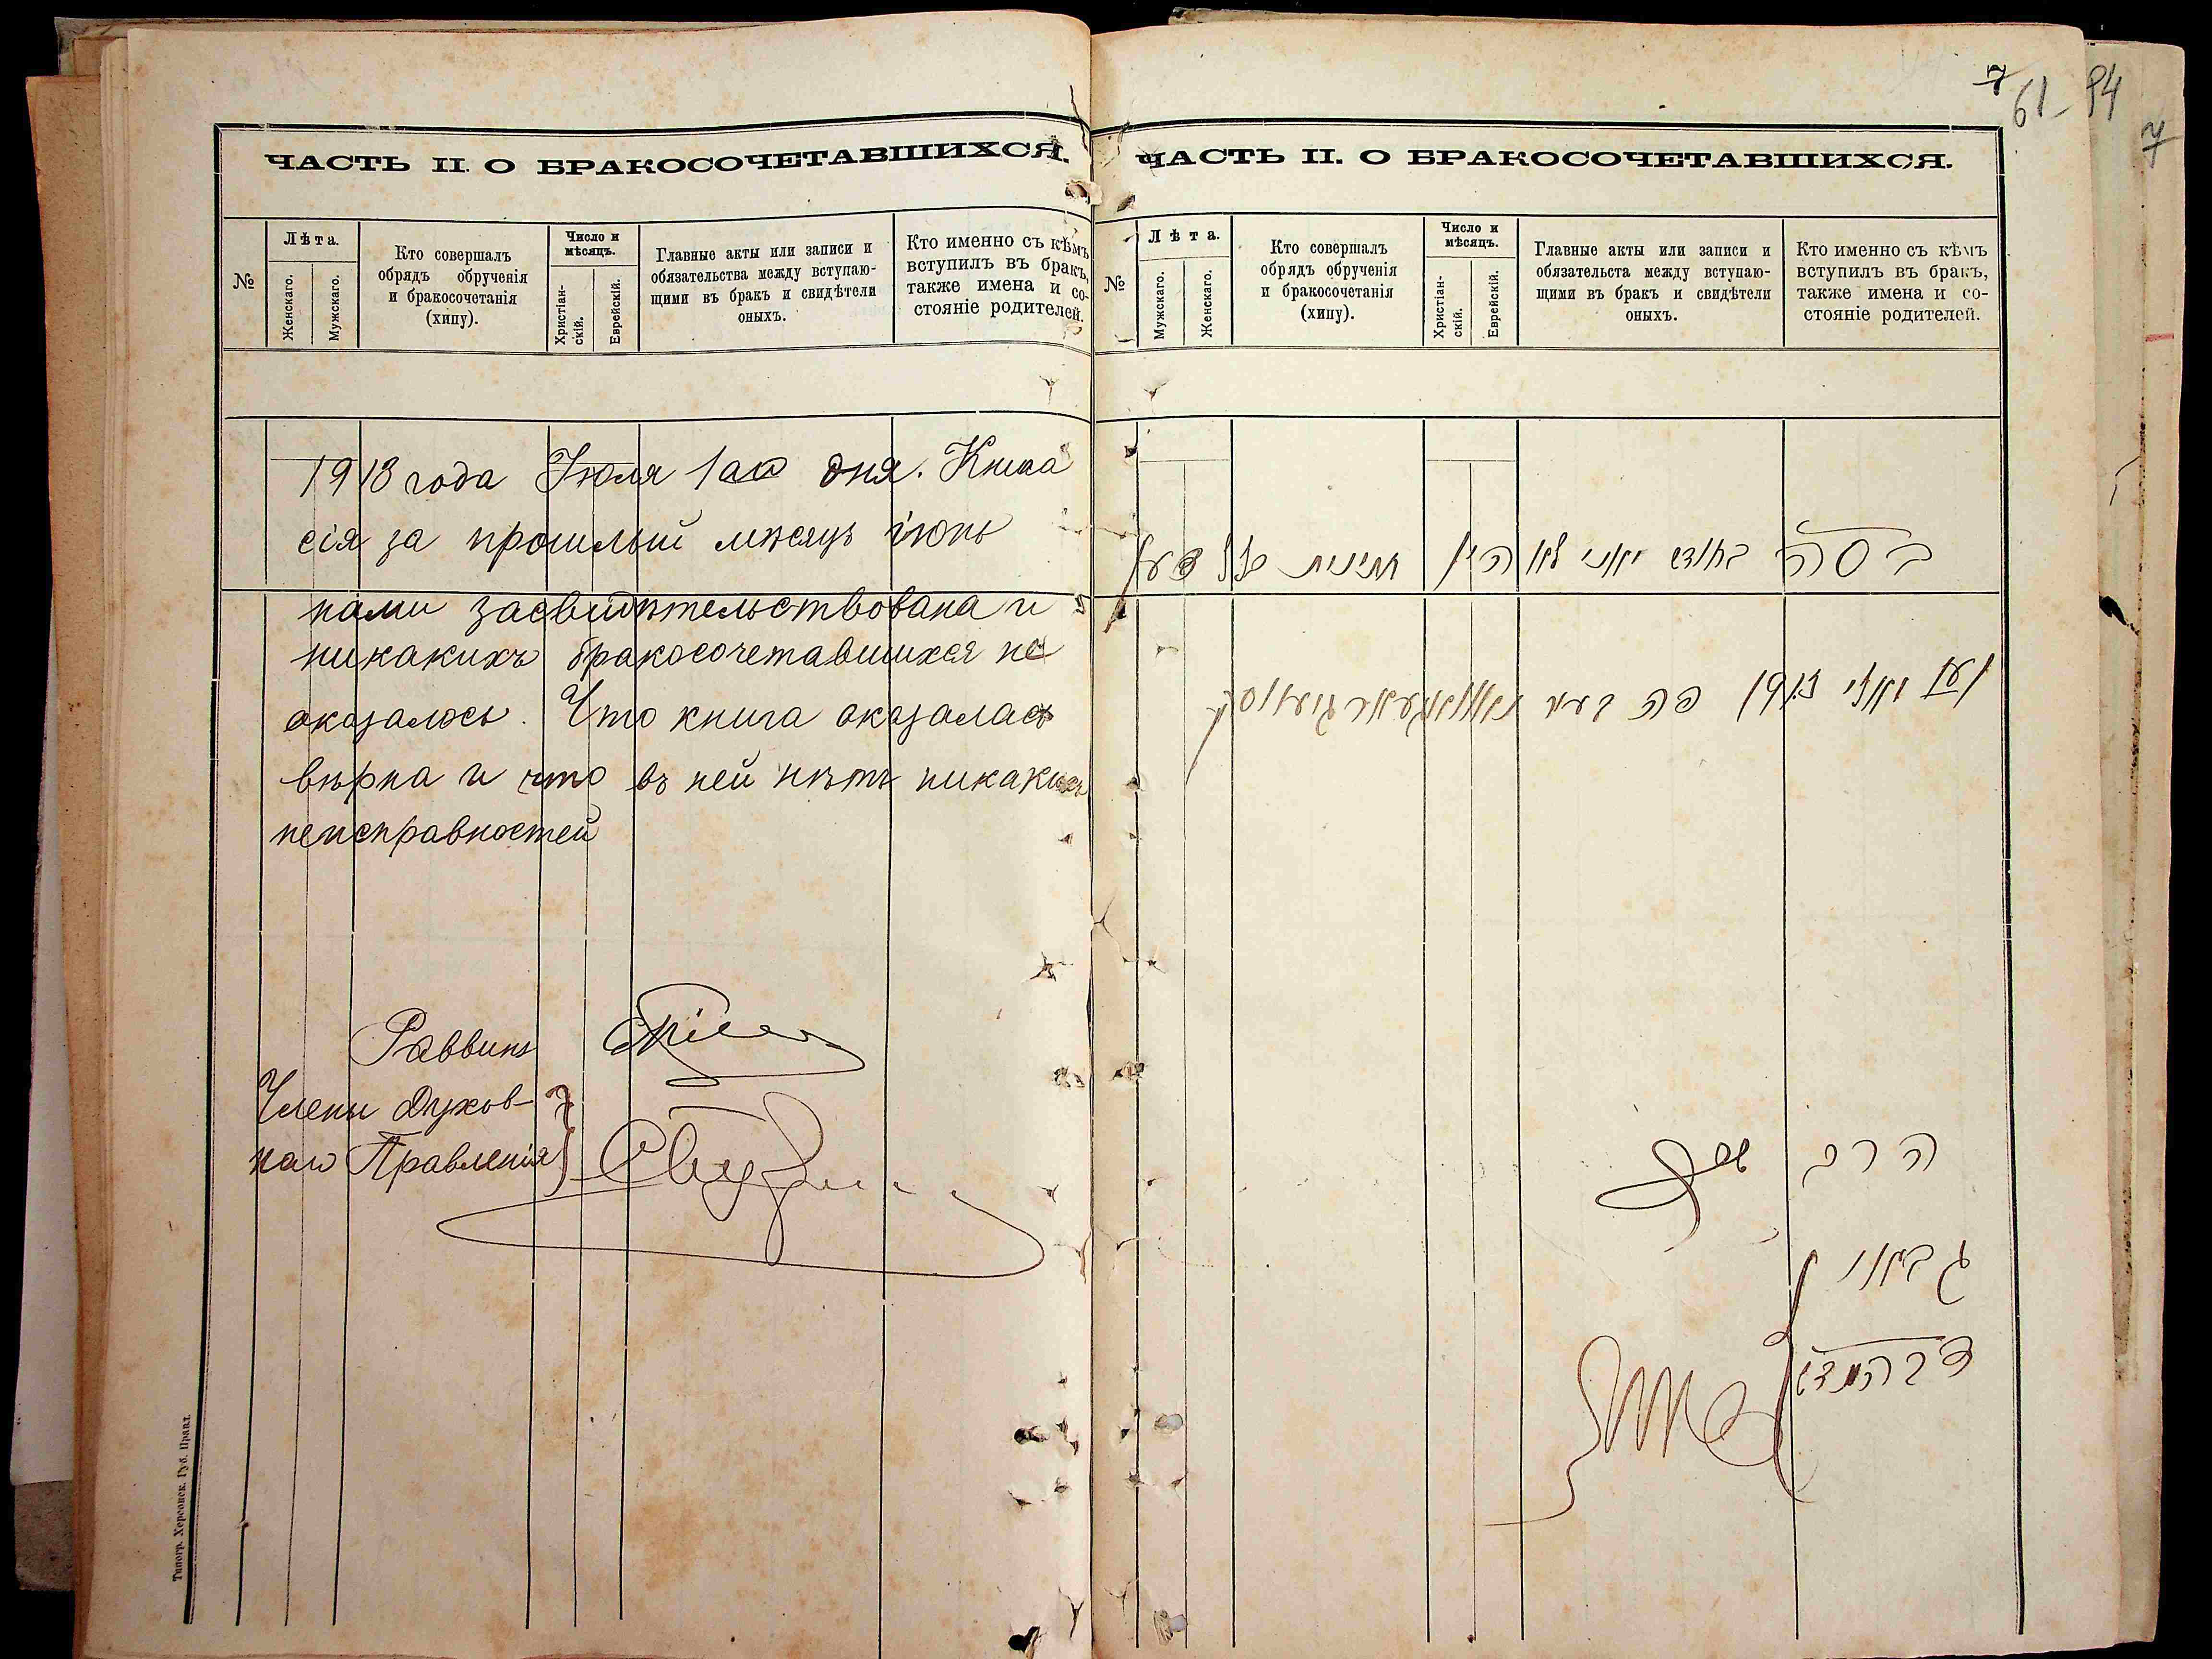 7 61 94
7
ЧАСТЬ II. О БРАКОСОЧЕТАВШИХСЯ.
№
Лѣта.
Женскаго.
Мужскаго.
Кто совершалъ
обрядъ обрученія
и бракосочетанія
(хипу).
Число и
мѣсяцъ.
Христіан-
скій.
Еврейскій.
Главные акты или записи и
обязательства между вступаю-
щими въ бракъ и свидѣтели
оныхъ.
Кто именно съ кѣмъ
вступилъ въ бракъ,
также имена и со-
стояніе родителей.
1913 года Іюля 1го дня. Книга
сія за прошлый мѣсяцъ іюнь
нами засвидѣтельствована и
никакихъ бракосочетавшихся не
оказалось. Что книга оказалась
вѣрна и что въ ней нѣтъ никакихъ
неисправностей
Раввинъ
Члены Духов-
наго Правленія
Типогр. Херсонск. Губ. Правл.
ЧАСТЬ II. О БРАКОСОЧЕТАВШИХСЯ.
№
Лѣта.
Мужскаго.
Женскаго.
Кто совершалъ
обрядъ обрученія
и бракосочетанія
(хипу).
Число и
мѣсяцъ.
Христіан-
скій.
Еврейскій.
Главные акты или записи и
обязательста между вступаю-
щими въ бракъ и свидѣтели
оныхъ.
Кто именно съ кѣмъ
вступилъ въ бракъ,
также имена и со-
стояніе родителей.
בחודש יוני לא היו
1913 פה
הרב
גבאי